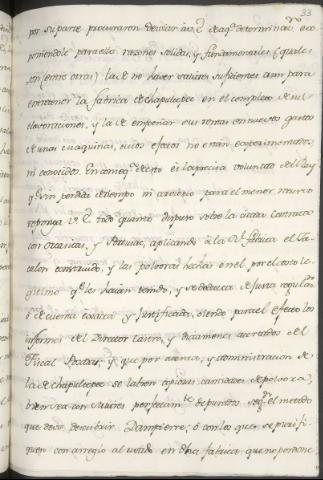 33
por su parte procuraron desviar á V.E. de aq.a determinac.on exponiendole para ello razones solidas, y fundamentales (quales
son (entre otras) la de no haver salitres suficientes aun para
entretener la fabrica de Chapultepec en el completo de sus
elavoraciones, y la de empeñar sus rentas en nuevos gastos
de unas maquinas, cuios efectos no estan experimentados,
ni conocidos. En conseq.a de esto es la precisa voluntad del Rey
q.e sin perdida de tiempo ni arvitrio para el menor recurso
reponga V.E. todo quanto dispuso sobre la citada contrata
con Ocasitas, y aplicando á la R.l fabrica el
construido, y las polvoras hechas en el por el coste le
gitimo q.e les hayan tenido, y se deduzca de justa regulac.on
ó de cuenta exacta y justificada, siendo para el efecto los
informes del Director Castro, y dictamenes acertados del
Fiscal Posada; y que por asiento, y administracion de
la de Chapultepec se labren copiosas cantidades de polvora,
bien sea con salitres perfectam.te depurados seg.n el metodo
que devió descubrir Dampierre; ó con los que se purifi
quen con arreglo al usado en dicha fabrica, que no perdone